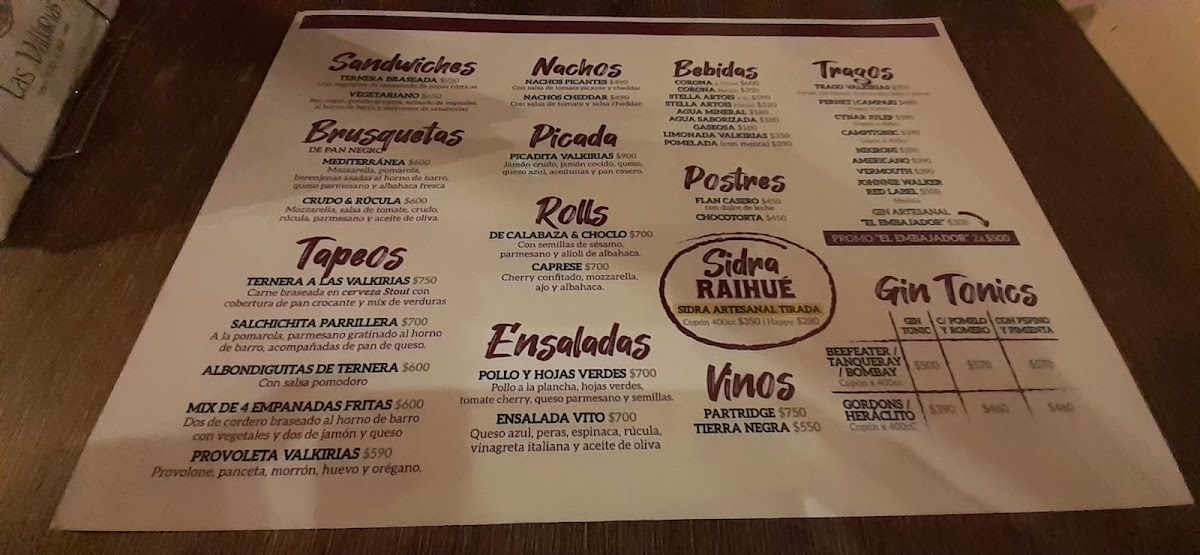 Las Valkirias
Sandwiches
TERNERA BRASEADA
VEGETARIANO $650
Brusquetas
DE PAN NEGRO
MEDITERRÁNEA $600
Mozzarella, pomarola,
berenjenas asadas al horno de barro,
queso parmesano y albahaca fresca
CRUDO & RÚCULA $600
Mozzarella, salsa de tomate, crudo,
rúcula, parmesano y aceite de oliva.
Tapeos
TERNERA A LAS VALKIRIAS $750
Carne braseada en cerveza Stout con
cobertura de pan crocante y mix de verduras
SALCHICHITA PARRILLERA $700
A la pomarola, parmesano gratinado al horno
de barro, acompañadas de pan de queso.
ALBONDIGUITAS DE TERNERA $600
Con salsa pomodoro
MIX DE 4 EMPANADAS FRITAS $600
Dos de cordero braseado al horno de barro
con vegetales y dos de jamón y queso
PROVOLETA VALKIRIAS $590
Provolone, panceta, morrón, huevo y orégano.
Nachos
NACHOS PICANTES $490
Con salsa de tomate picante y cheddar
NACHOS CHEDDAR $490
Con salsa de tomate y salsa cheddar
Picada
PICADITA VALKIRIAS $900
Jamón crudo, jamón cocido, queso,
queso azul, aceitunas y pan casero.
Rolls
DE CALABAZA & CHOCLO $700
Con semillas de sésamo,
parmesano y allioli de albahaca.
CAPRESE $700
Cherry confitado, mozzarella,
ajo y albahaca.
Ensaladas
POLLO Y HOJAS VERDES $700
Pollo a la plancha, hojas verdes,
tomate cherry, queso parmesano y semillas.
ENSALADA VITO $700
Queso azul, peras, espinaca, rúcula,
vinagreta italiana y aceite de oliva
Bebidas
CORONA $600
CORONA
STELLA ARTOIS
STELLA ARTOIS
AGUA MINERAL $180
AGUA SABORIZADA $180
GASEOSA $180
LIMONADA VALKIRIAS $350
POMELADA (con menta) $390
Postres
FLAN CASERO $450
con dulce de leche
CHOCOTORTA $450
Sidra
RAIHUÉ
SIDRA ARTESANAL TIRADA
Copón 400cc $350 | Happy $280
Vinos
PARTRIDGE $750
TIERRA NEGRA $550
Tragos
TRAGO VALKIRIAS
FERNET | CAMPARI
CYNAR JULEP
CAMPITONIC
NEGRONI
AMERICANO
VERMOUTH
JOHNNIE WALKER
RED LABEL
Medida
GIN ARTESANAL
"EL EMBAJADOR" $300
PROMO "EL EMBAJADOR" 2x $500
Gin Tonics
GIN TONIC C/ POMELO Y ROMERO CON PEPINO Y PIMIENTA
BEEFEATER /
TANQUERAY
/ BOMBAY $500 $570 $570
Copón x 400cc
GORDONS /
HERÁCLITO $390 $460 $460
Copón x 400cC